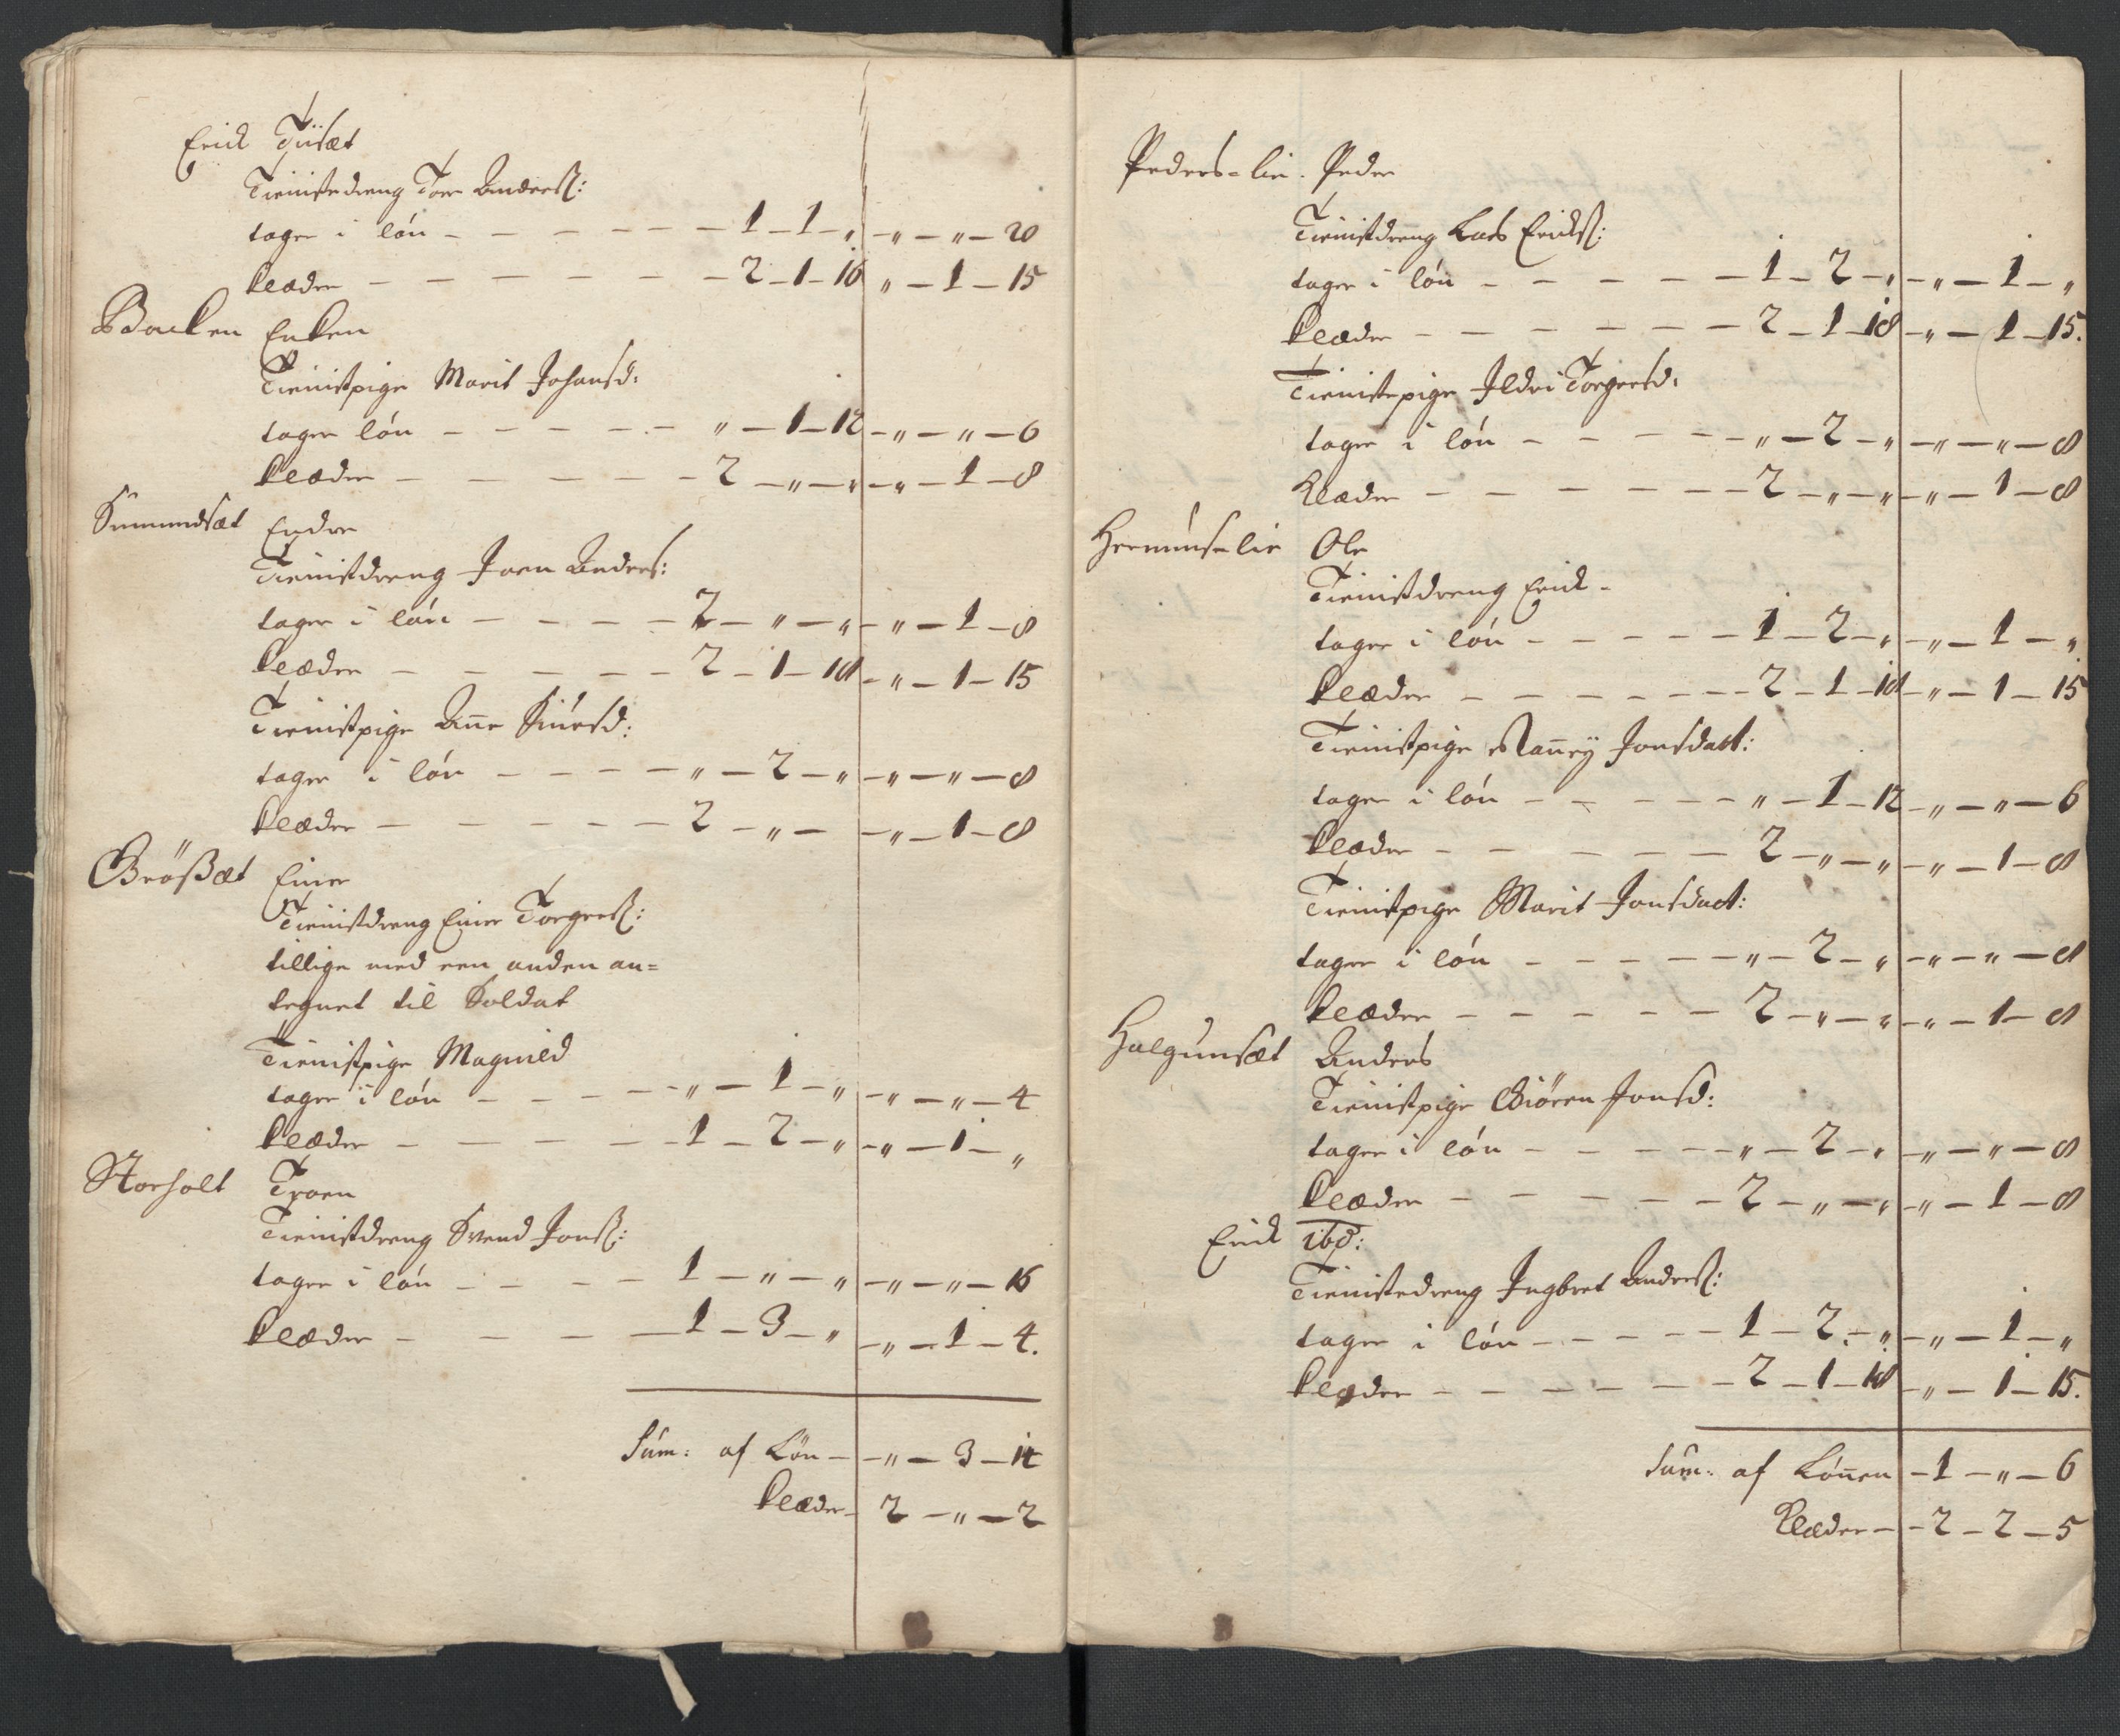 Erick Tiisæt
Tienistedreng Tore Anderss:
tager i lön – – – – – – 1 – 1 – „ – „ – „ – 20
klæder – – – – – – 2 – 1 – 16 „ – 1 – 15
Backen Enken
Tienistpige Marit Johansd:
tager lön – – – – – „ – 1 – 12 – „ – „ – 6
klæder – – – – – 2 – „ – „ – „ – 1 – 8
Simundsæt Endre
Tienistdreng Joen Anders:
tager i lön – – – – 2 – „ – „ – „ – 1 – 8
klæder – – – – – 2 – 1 – 18 – „ – 1 – 15
Tienistpige Anne Siursd:
tager i lön – – – – „ – 2 – „ – „ – „ – 8
klæder – – – – – 2 – „ – – „ – 1 – 8
Brößæt Einer
Tienistdreng Einer Torgerss:
tillige med een anden an=
tegnet til Soldat
Tienistpige Magnild
tager i lön – – – – „ – 1 – „ – „ – „ – 4
klæder – – – – – 1 – 2 – „ – „ – 1 – „
Storholt Troen
Tienistdreng Svend Jonss:
tager i lön – – – – 1 – „ – „ – „ – „ – 16
klæder – – – – 1 – 3 – „ – „ – 1 – 4.
Sum: af Lön – – „ – 3 – 14
klæder – 2 – „ – 2
Peders-lie. Peder
Tienistdreng Lars Erickss:
tager i lön – – – – – 1 – 2 – „ – „ – 1 – „
klæder – – – – – – 2 – 1 – 18 – „ – 1 – 15.
Tienistepige Ildri Torgersd:
tager i lön – – – – „ – 2 – „ – „ – „ – 8
Klæder – – – – – 2 – „ – „ – „ – 1 – 8
Hermunslie Ole
Tienistdreng Erick –
tager i lön – – – – – 1 – 2 – „ – „ – 1 – „
klæder – – – – – – 2 – 1 – 18 – „ – 1 – 15
Tienistpige Ranney Jonsdatt:
tager i lön – – – – – „ – 1 – 12 – „ – „ – 6
klæder – – – – – 2 – „ – „ – „ – 1 – 8
Tienistpige Marit Jonsdatt:
tager i lön – – – – – „ – 2 – „ – „ – „ – 8
klæder – – – – – 2 – „ – „ – „ – 1 – 8
Halgunsæt Anders
Tienistpige Giören Jonsd:
tager i lön – – – – – „ – 2 – „ – „ – „ – 8
klæder – – – – – 2 – „ – „ – „ – 1 – 8
Erick ibd:
Tienistedreng Ingbret Anderss:
tager i lön – – – – – 1 – 2 – „ – „ – 1 – „
klæder – – – – – 2 – 1 – 18 – „ – 1 – 15.
Sum: af Lönnen – 1 – „ – 6
Klæder – – 2 – 2 – 5